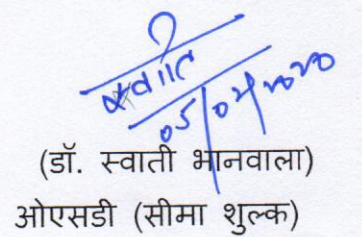 स्वाति
05/02/2020
(डॉ. स्वाती भानवाला)
ओएसडी (सीमा शुल्क)